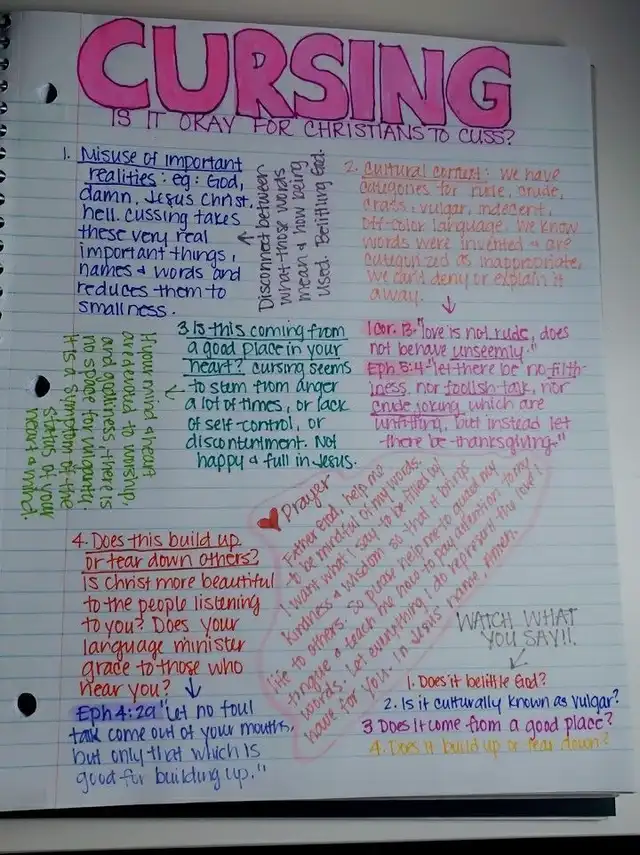 CURSING
IS IT OKAY FOR CHRISTIANS TO CUSS?
1. Misuse of important
realities: eg: God,
damn, Jesus Christ,
hell. cussing takes
these very real
important things,
names & words and
reduces them to
smallness.
Disconnect between
what those words
mean & how being
used. Belittling God.
2. Cultural context: We have
categories for rude, crude,
crass, vulgar, indecent,
off-color language. We know
words were invented & are
categorized as inappropriate,
We can't deny or explain it
away.
1 Cor. 13 "love is not rude, does
not behave unseemly."
Eph 5:4 "let there be no filth-
iness, nor foolish talk, nor
crude joking, which are
unfitting, but instead let
there be thanksgiving."
3 Is this coming from
a good place in your
heart? cursing seems
to stem from anger
a lot of times, or lack
of self-control, or
discontentment. Not
happy & full in Jesus.
If your mind & heart
are tuned to worship,
and godliness, there is
no space for vulgarity.
It is a symptom of the
status of your
heart & mind.
Prayer
Father God, help me
to be mindful of my words.
I want what I say to be filled w/
kindness & wisdom so that it brings
life to others. So please help me to guard my
tongue & teach me how to pay attention to my
words. Let everything I do represent the love I
have for you. In Jesus' name, Amen.
4. Does this build up
or tear down others?
Is Christ more beautiful
to the people listening
to you? Does your
language minister
grace to those who
hear you?
Eph 4:29 "Let no foul
talk come out of your mouths,
but only that which is
good for building up."
WATCH WHAT
YOU SAY!!
1. Does it belittle God?
2. Is it culturally known as vulgar?
3 Does it come from a good place?
4. Does it build up or tear down?